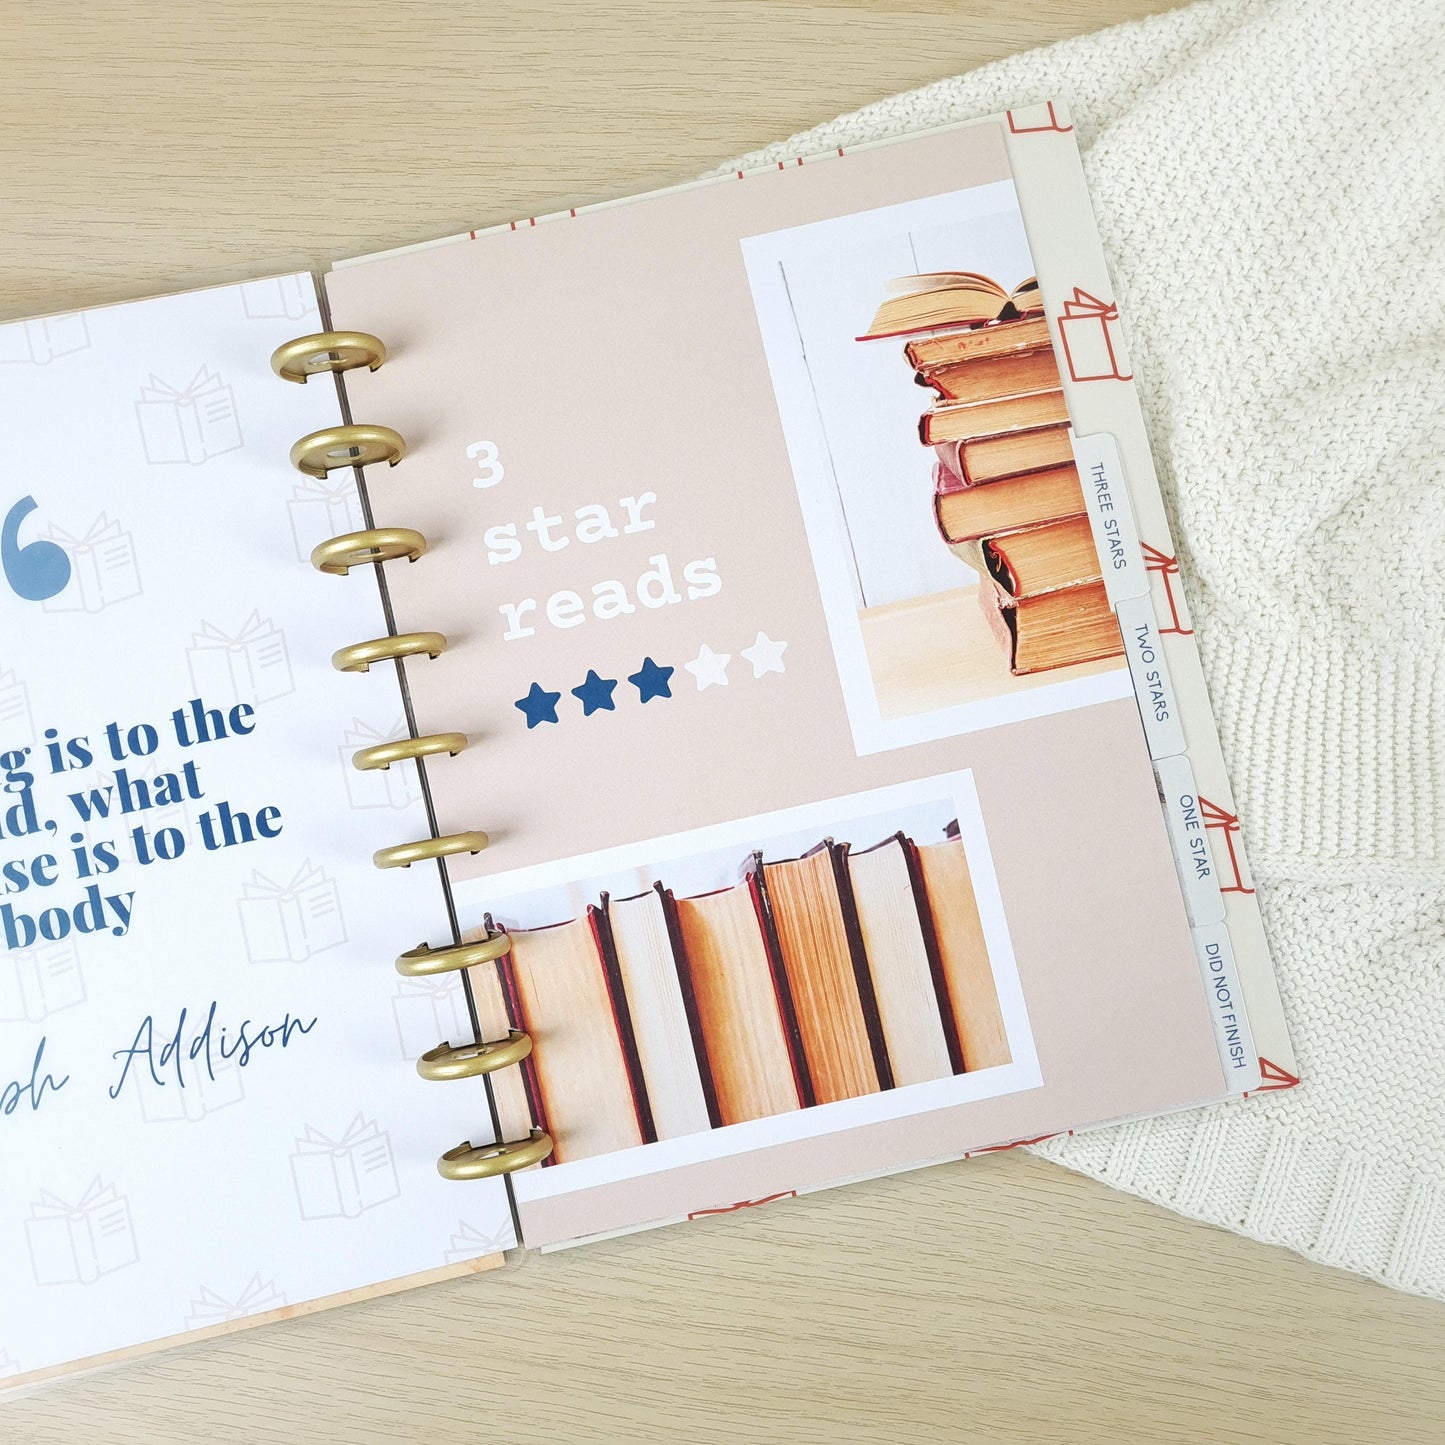 “
g is to the
d, what
se is to the
body
ph Addison
3
star
reads
THREE STARS
TWO STARS
ONE STAR
DID NOT FINISH